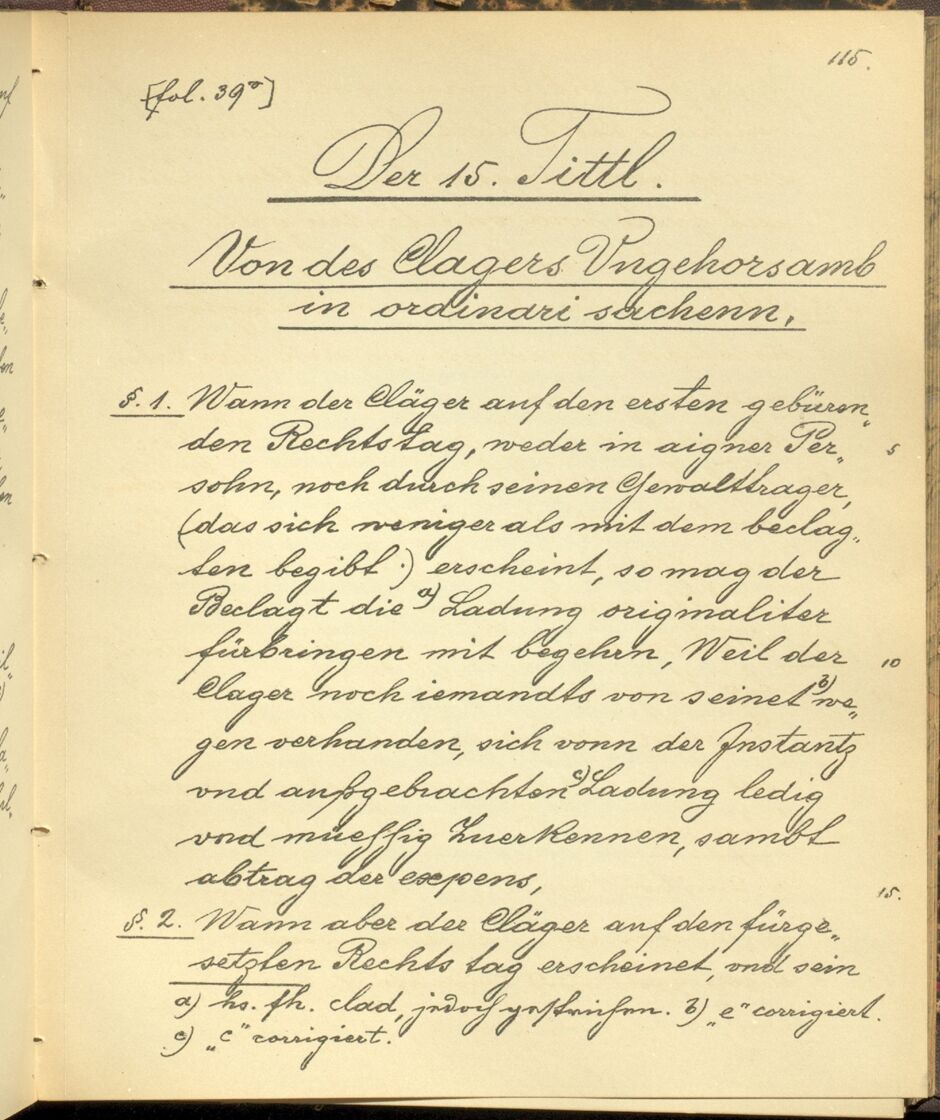 115.
[fol. 39v]
Der 15. Tittl.
Von des Clagers Vngehorsamb
in ordinari sachenn.
§. 1. Wann der Cläger auf den ersten gebüren„
den Rechtstag, weder in aigner Per„
5
sohn, noch durch seinen Gewalttrager,
(das sich weniger als mit dem beclag„
ten begibt.) erscheint, so mag der
Beclagt die a) Ladung originaliter
fürbringen mit begehrn, Weil der
10
Clager noch iemandts von seinet b) we„
gen verhanden, sich vonn der Instantz
vnd außgebrachten c) Ladung ledig
vnd müessig Zuerkennen, sambt
abtrag der expens,
15.
§. 2. Wann aber der Cläger auf den fürge„
setzten Rechts tag erscheinet, vnd sein
a) hs. fh. clad, jedoch gestrichen. b) „e" corrigiert.
c) „c" corrigiert.